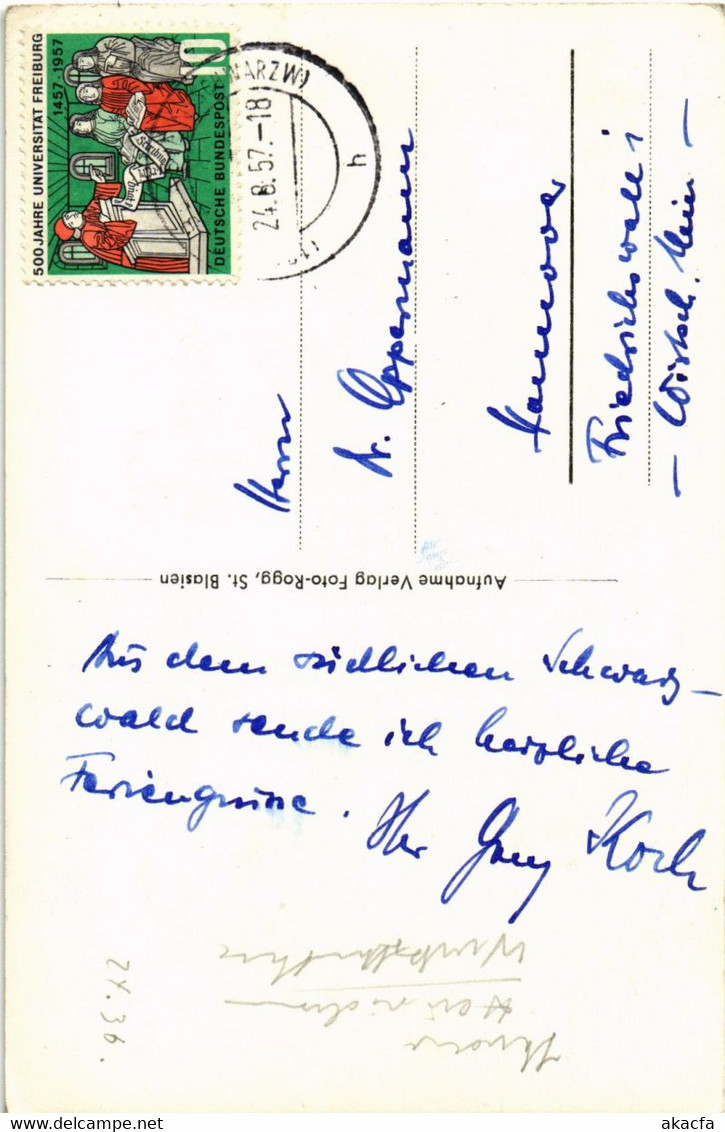 500 JAHRE UNIVERSITÄT FREIBURG
1457 · 1957
10
DEUTSCHE BUNDESPOST
WARZW)
24.8.57.-18
h
Herrn
Dr. Oppermann
Hannover
Friedrichswall 1
- Wirtsch. Min -
Aufnahme Verlag Foto-Rogg, St. Blasien
Aus dem südlichen Schwarz-
wald sende ich herzliche
Feriengrüsse.
Ihr Koch
24.36.
www.akacfa.com